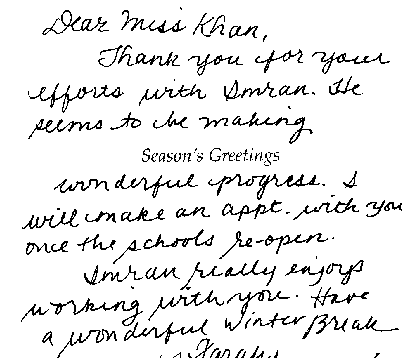 Dear Miss Khan,
Thank you for your
efforts with Imran. He
seems to be making
Season's Greetings
wonderful progress. I
will make an appt. with you
once the schools re-open.
Imran really enjoys
working with you. Have
a wonderful Winter Break